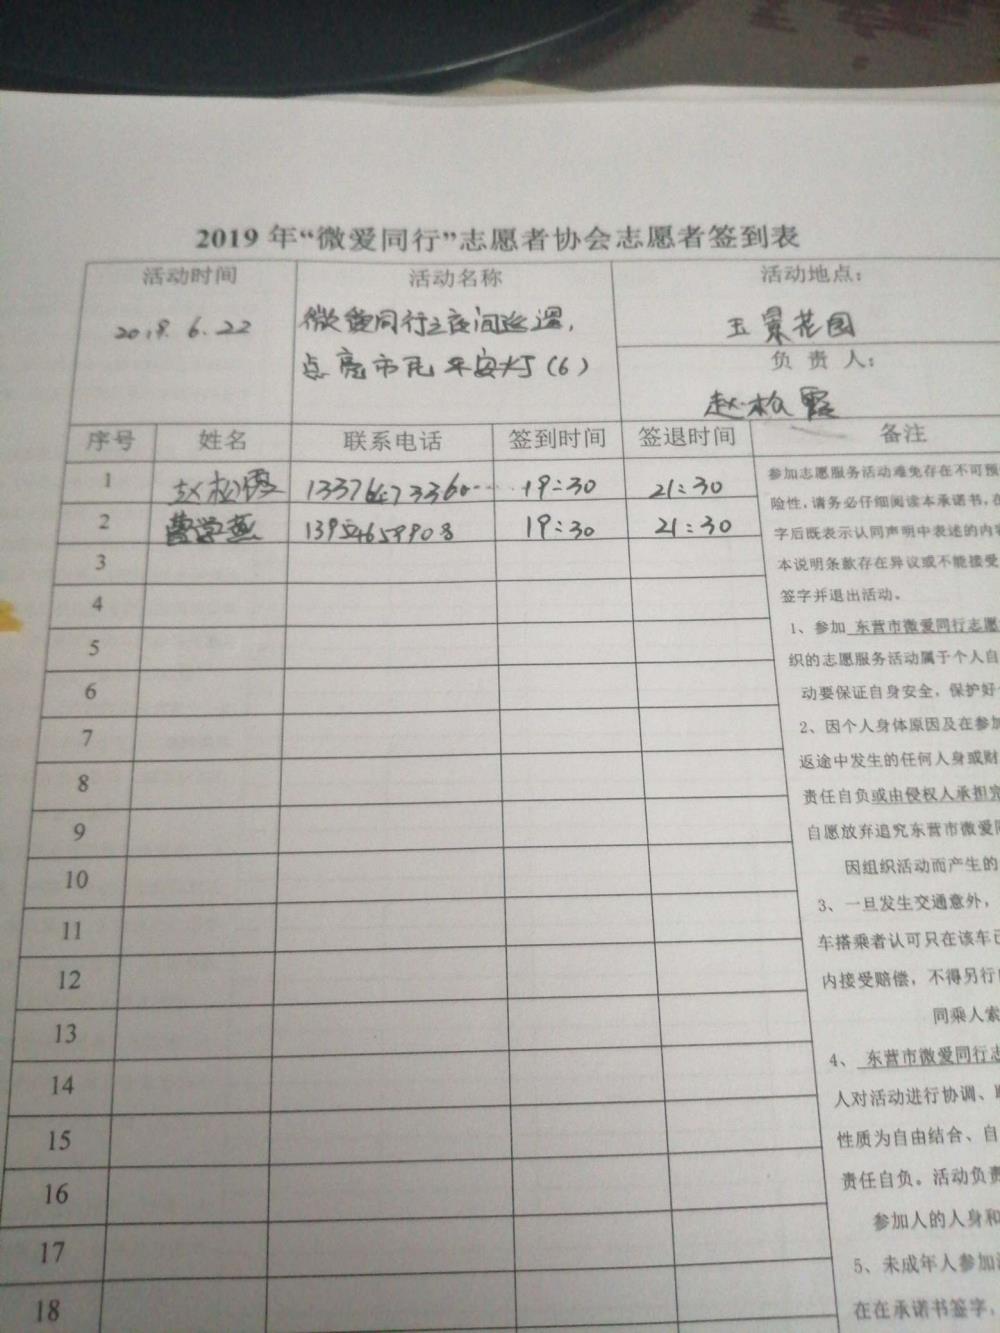 2019 年“微爱同行”志愿者协会志愿者签到表
活动时间 活动名称 活动地点：
2019. 6. 22 微爱同行之夜间巡逻， 玉景花园
点亮市民平安灯（6） 负 责 人：
赵松霞
序号 姓名 联系电话 签到时间 签退时间 备注
1 赵松霞 19:30 21:30
2 19:30 21:30
3
4
5
6
7
8
9
10
11
12
13
14
15
16
17
18
参加志愿服务活动难免存在不可预
险性，请务必仔细阅读本承诺书，在
字后既表示认同声明中表述的内容
本说明条款存在异议或不能接受
签字并退出活动。
1、参加 东营市微爱同行志愿
织的志愿服务活动属于个人自
动要保证自身安全，保护好
2、因个人身体原因及在参加
返途中发生的任何人身或财
责任自负或由侵权人承担完
自愿放弃追究东营市微爱同
因组织活动而产生的
3、一旦发生交通意外，
车搭乘者认可只在该车已
内接受赔偿，不得另行
同乘人索
4、 东营市微爱同行志
人对活动进行协调、
性质为自由结合、自
责任自负。活动负责
参加人的人身和
5、未成年人参加
在在承诺书签字，